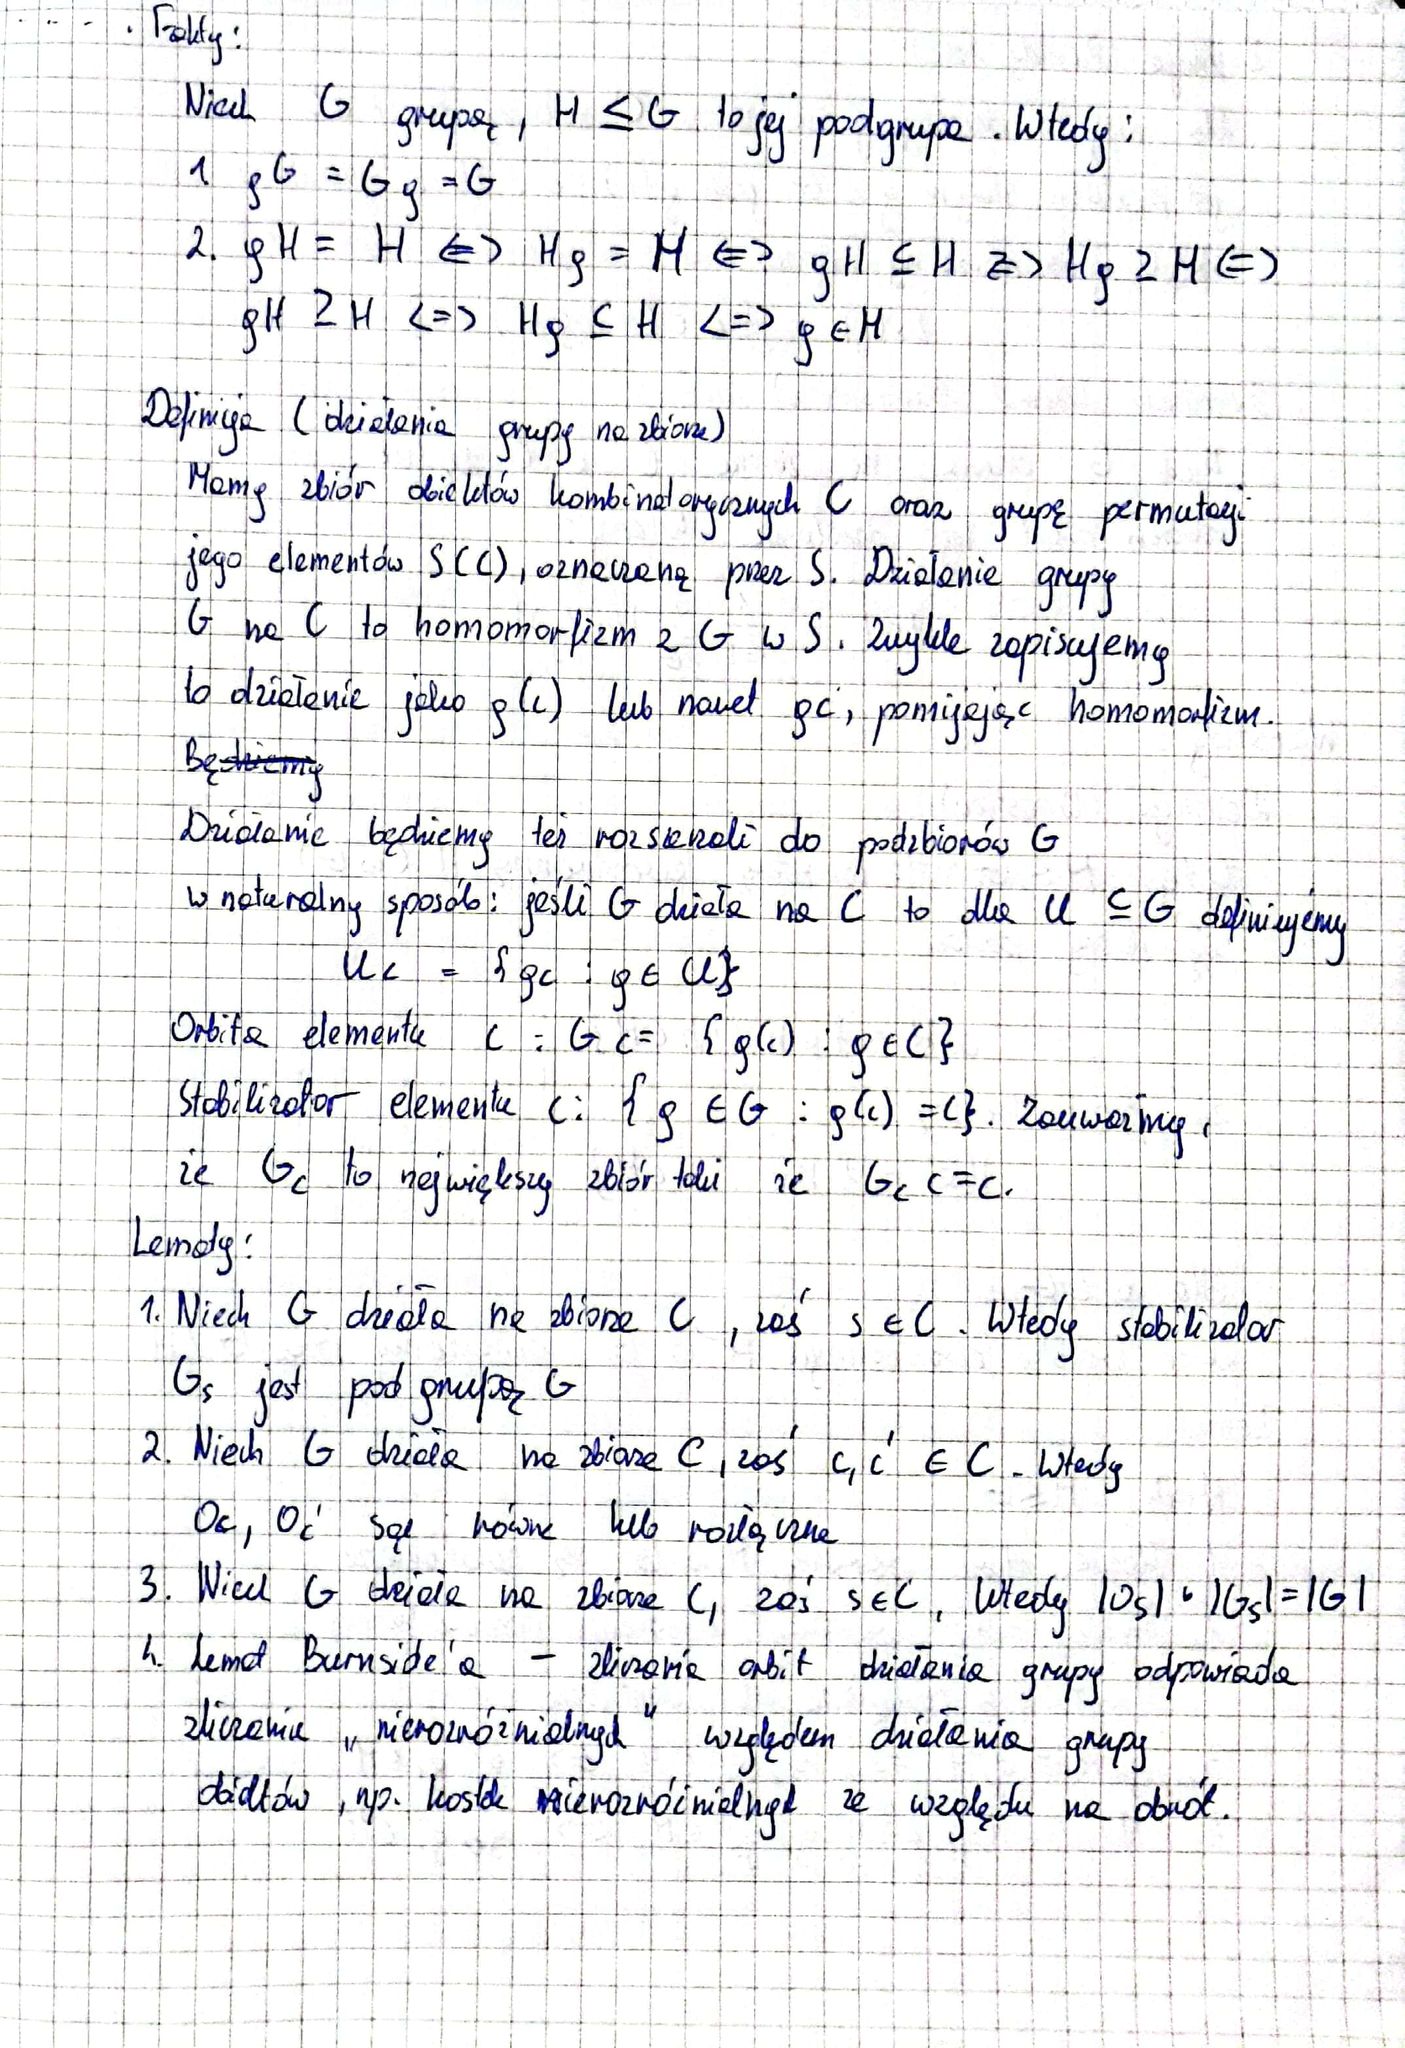 Fakty:
Niech G grupą, H ≤ G to jej podgrupa. Wtedy:
1 gG = Gg = G
2. gH = H <=> Hg = H <=> gH ⊆ H <=> Hg ⊇ H <=>
gH ⊇ H <=> Hg ⊆ H <=> g ∈ H
Definicja (działania grupy na zbiorze)
Mamy zbiór obiektów kombinatorycznych C oraz grupę permutacji
jego elementów S(C), oznaczaną przez S. Działanie grupy
G na C to homomorfizm z G w S. Zwykle zapisujemy
to działanie jako g(c) lub nawet gc, pomijając homomorfizm.
Będziemy
Działanie będziemy też rozszerzali do podzbiorów G
w naturalny sposób: jeśli G działa na C to dla U ⊆ G definiujemy
Uc = {gc : g ∈ U}
Orbita elementu c : Gc = {g(c) : g ∈ C}
Stabilizator elementu c: {g ∈ G : g(c) = c}. Zauważmy,
że G_c to największy zbiór taki że G_c c = c.
Lematy:
1. Niech G działa na zbiorze C, zaś s ∈ C. Wtedy stabilizator
G_s jest podgrupą G
2. Niech G działa na zbiorze C, zaś c, c' ∈ C. Wtedy
O_c, O_c' są równe lub rozłączne
3. Niech G działa na zbiorze C, zaś s ∈ C, Wtedy |O_s| · |G_s| = |G|
4. Lemat Burnside'a – zliczania orbit działania grupy odpowiada
zliczaniu „nierozróżnialnych" względem działania grupy
obiektów, np. kostek nierozróżnialnych ze względu na obrót.